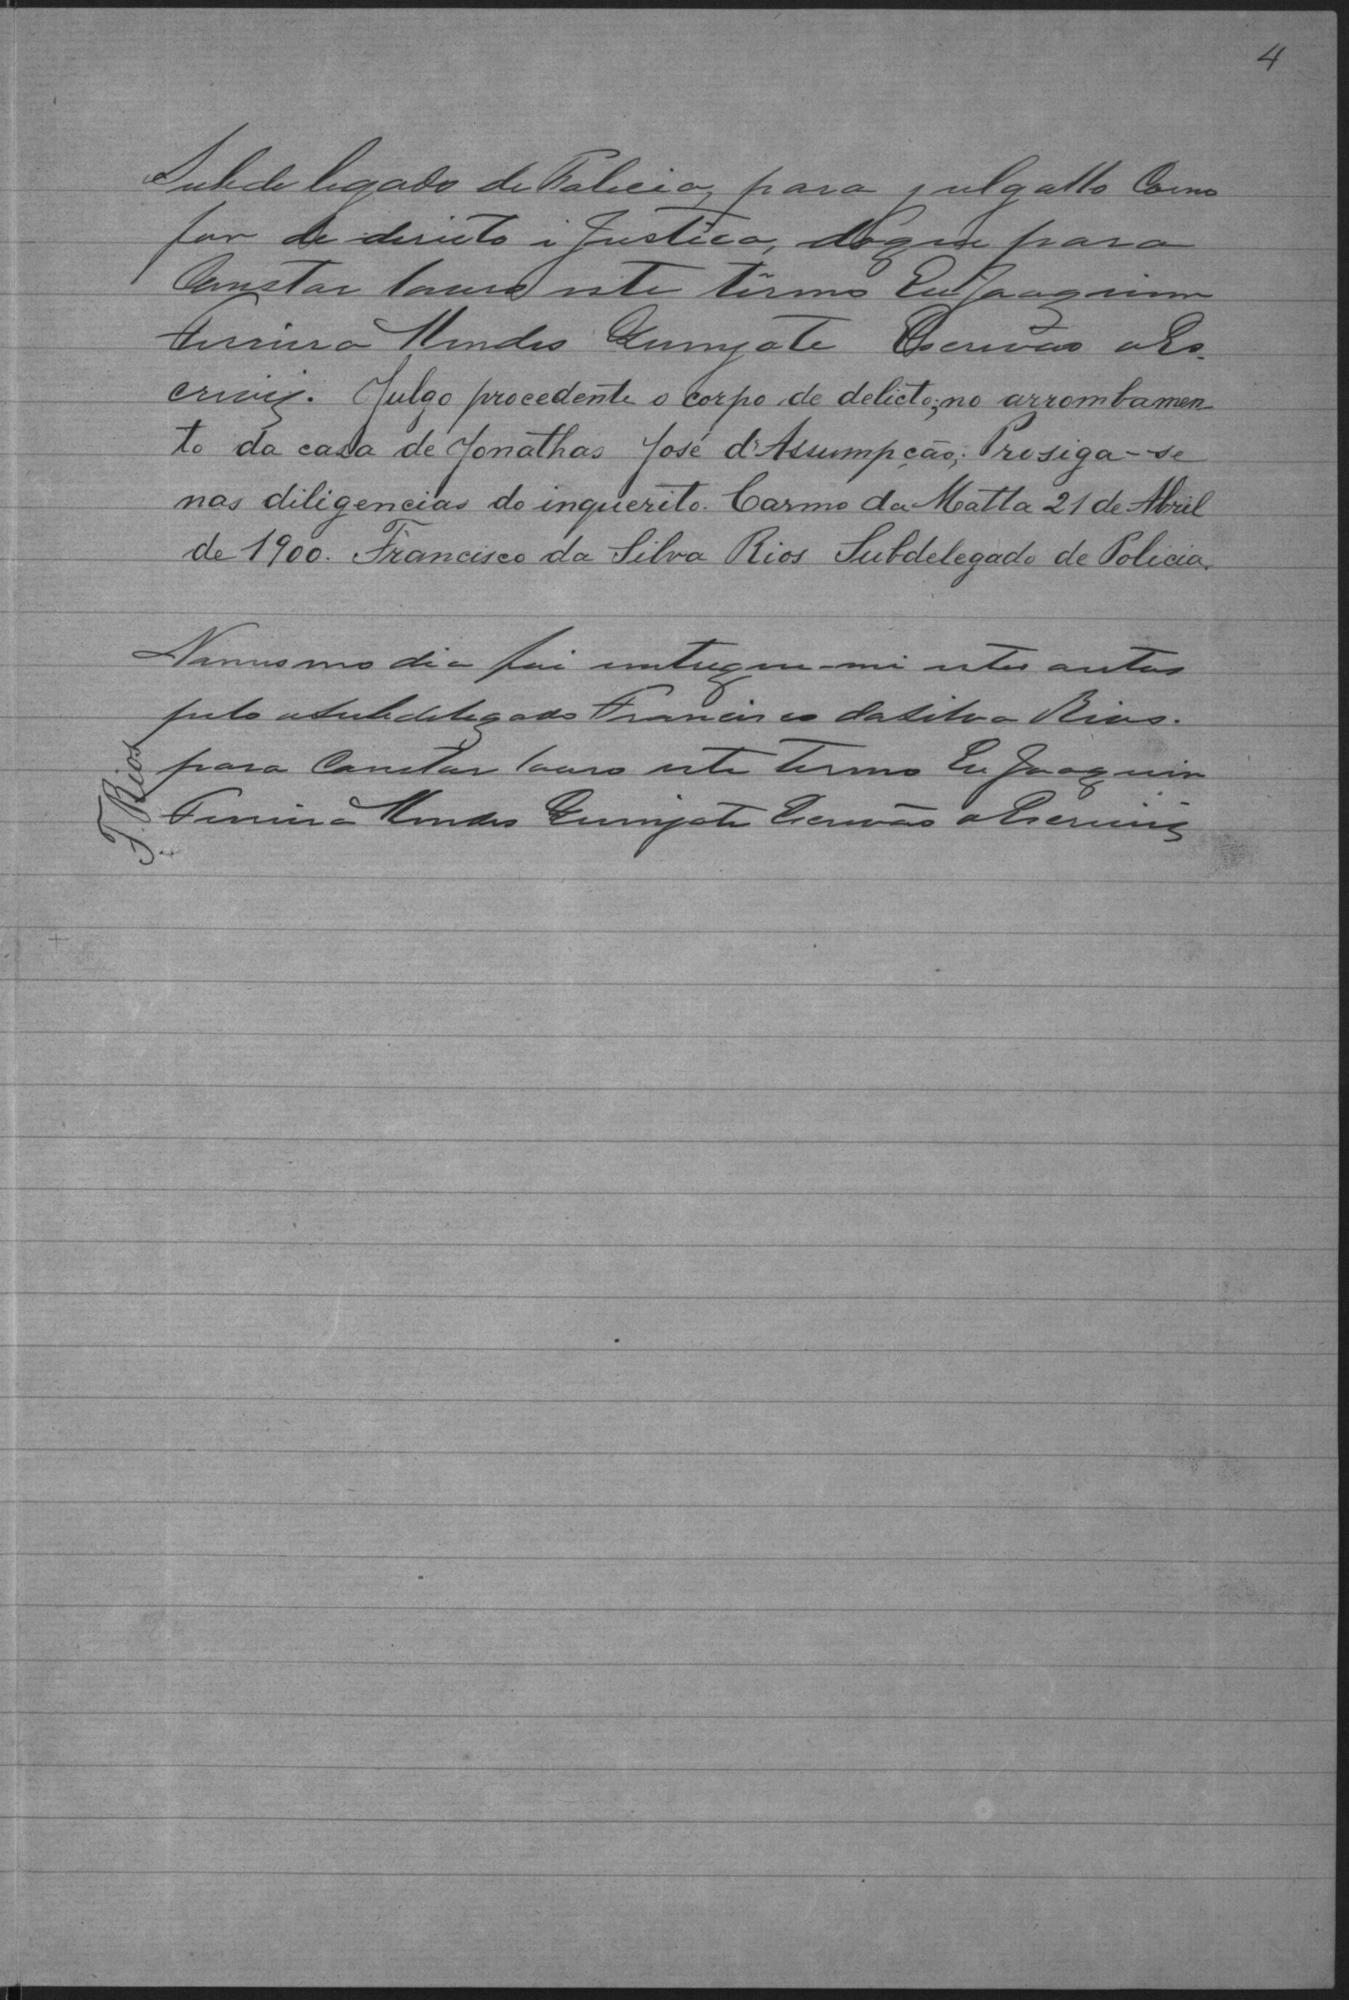 4
Subdelegado de Policia, para julgallo Como
for de direito i Justica, doque para
Constar lauro este têrmo Eu Joaquim
Ferreira Mendes Escrivão o Es-
crivij. Julgo procedente o corpo de delicto; no arrombamen
to da casa de Jonathas José d'Assumpção; Prosiga-se
nas diligencias do inquerito. Carmo da Matta 21 de Abril
de 1900. Francisco da Silva Rios Subdelegado de Policia.
Namesmo dia foi entregue-mi estes autos
pelo osubdelegado Francisco da Silva Rios.
para Constar lauro este termo Eu Joaquim
Ferreira Mendes Escrivão o Escrivij
F. Rios